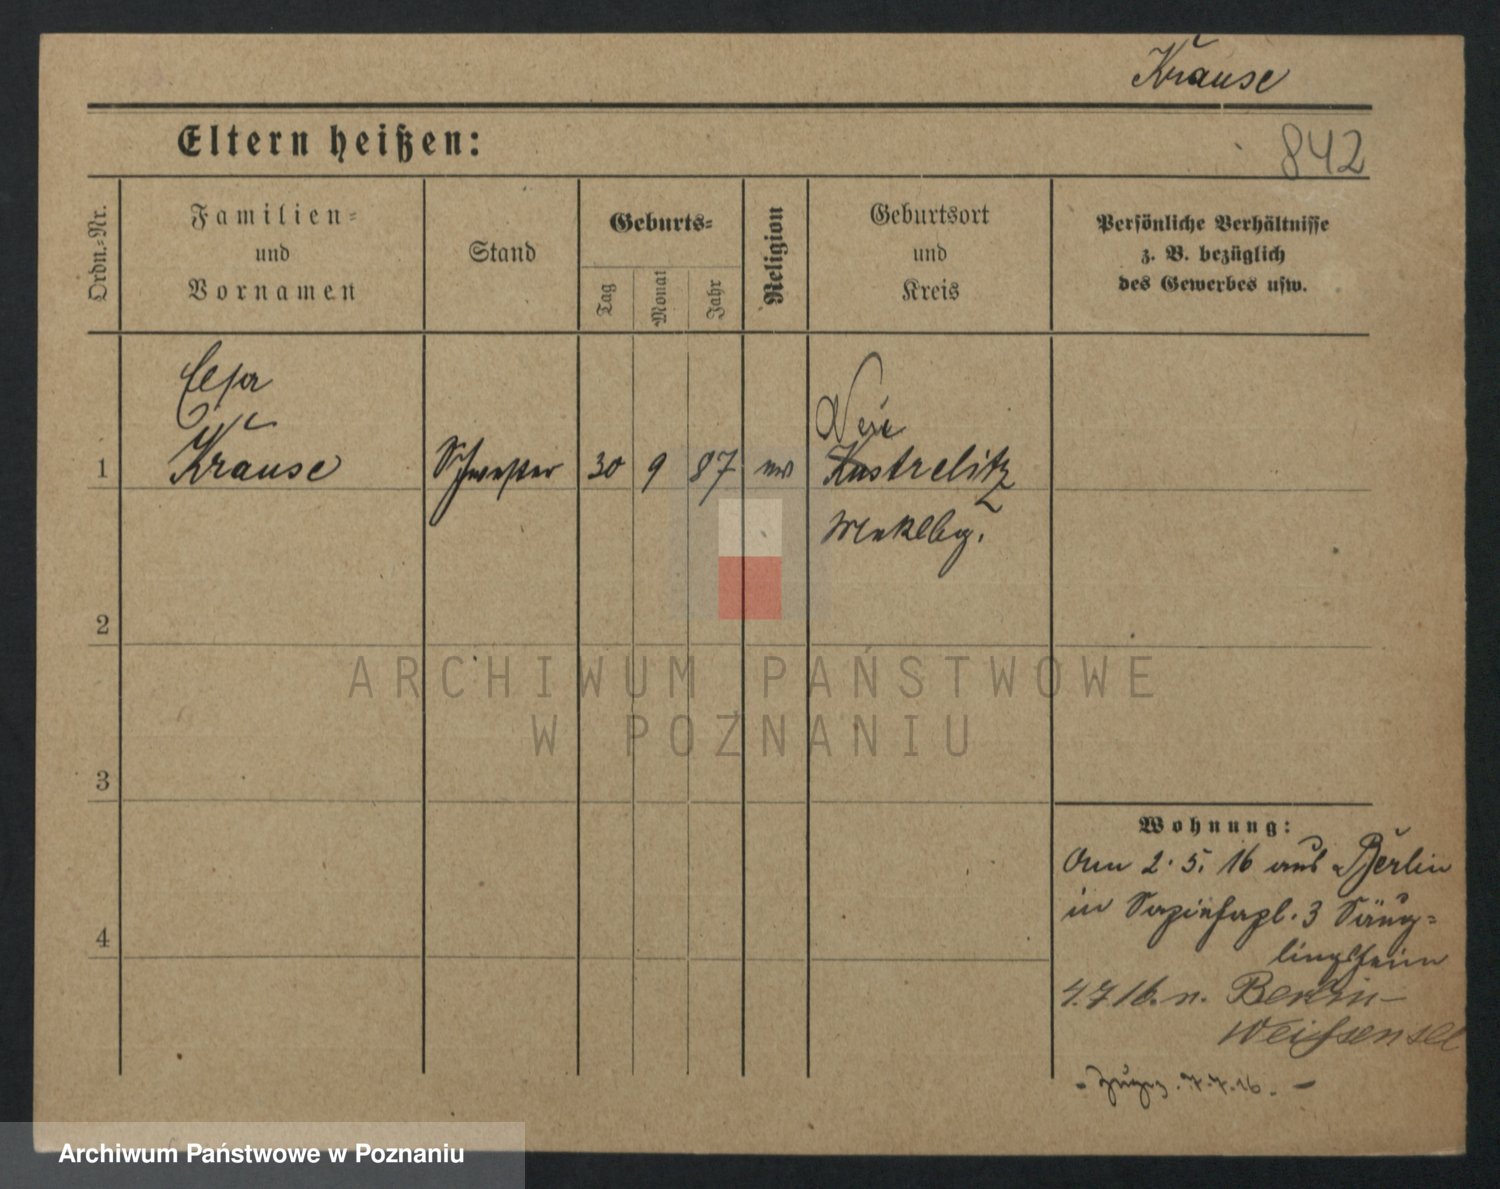 Krause
Eltern heißen:
842
Ordn.-Nr.
Familien-
und
Vornamen
Stand
Geburts-
Tag
Monat
Jahr
Religion
Geburtsort
und
Kreis
Persönliche Verhältnisse
z. B. bezüglich
des Gewerbes usw.
1
Krause
Schwester
30
9
87
ev
Neu
strelitz
Meklbg.
2
3
4
ARCHIWUM PAŃSTWOWE
W POZNANIU
Wohnung:
Am 2. 5. 16 aus Berlin
in 3 Säug-
lingsheim
4.7.16. n. Berlin-
Weißensee
7.7.16.
Archiwum Państwowe w Poznaniu